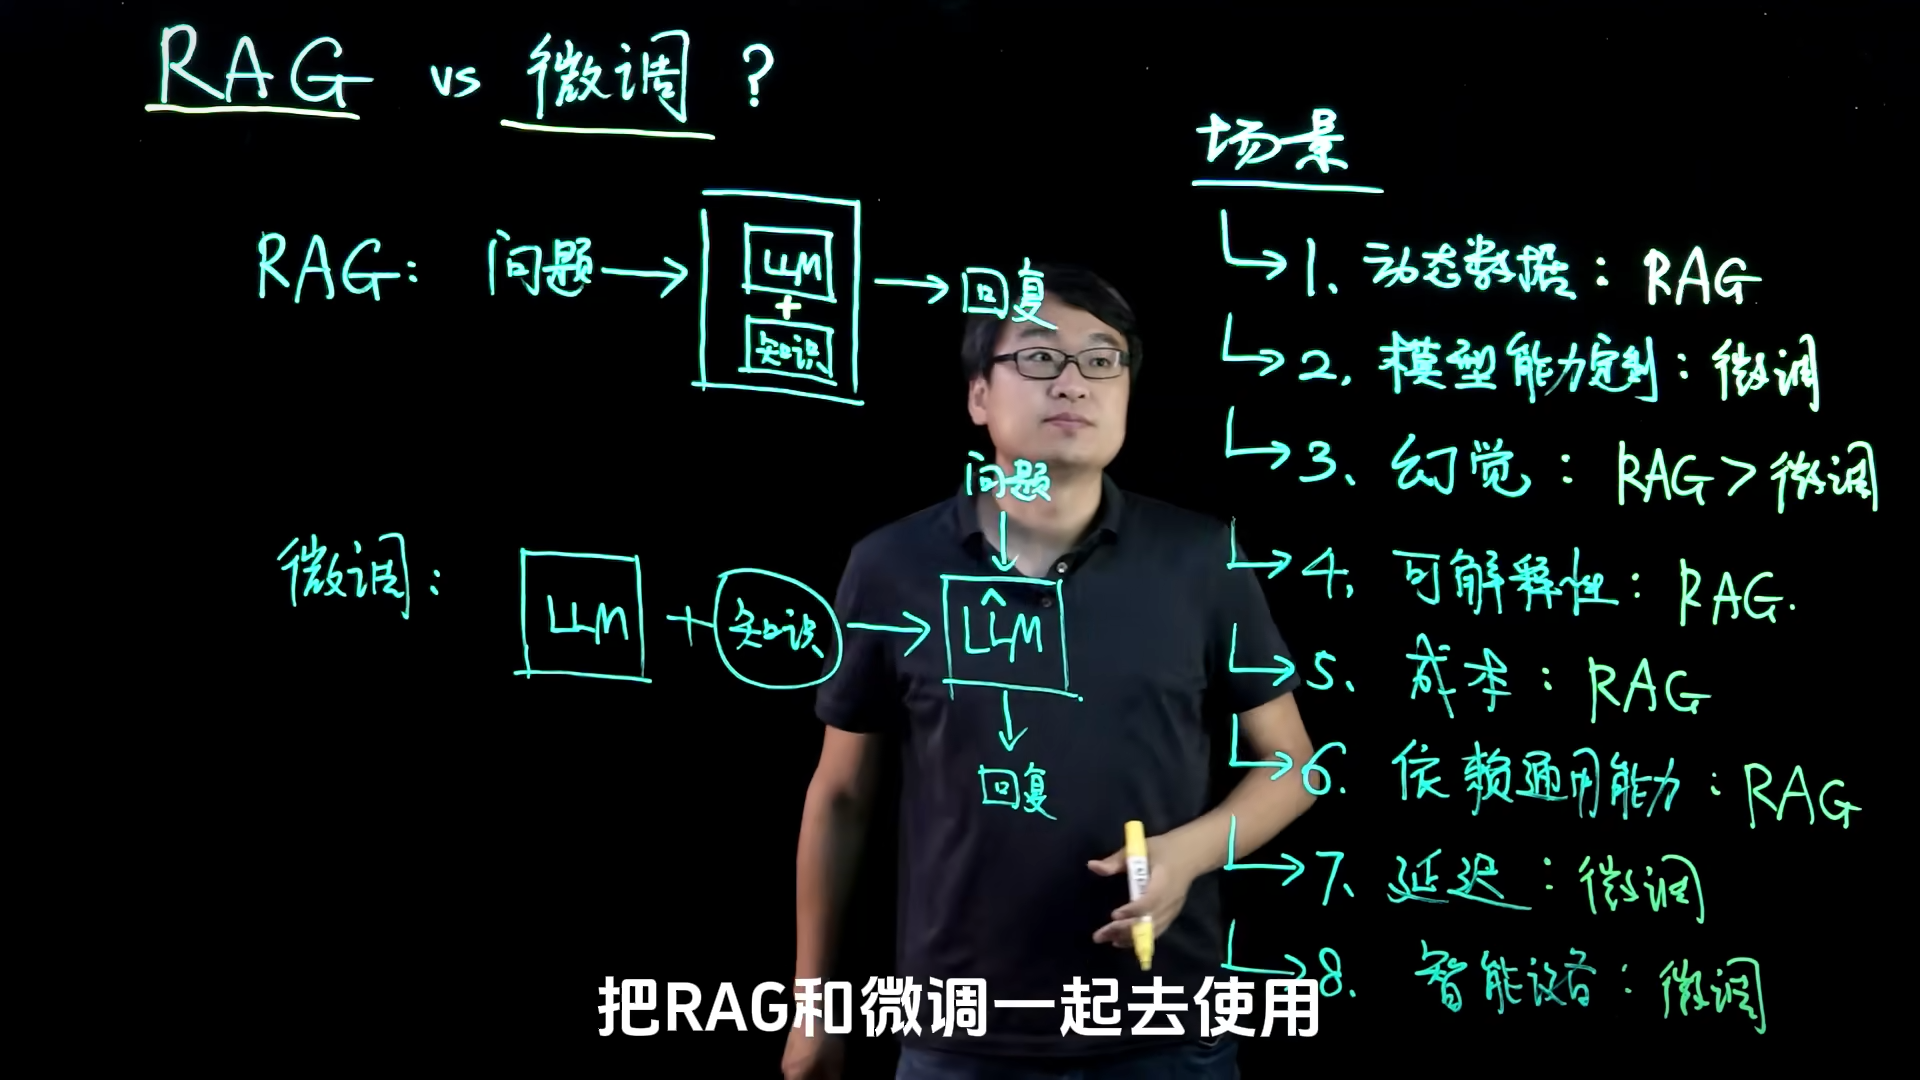 RAG vs 微调 ?
RAG: 问题 → LLM + 知识 → 回复
微调: LLM + 知识 → LL̂M
问题
回复
场景
1、动态数据: RAG
2, 模型能力定制: 微调
3、幻觉: RAG > 微调
4, 可解释性: RAG.
5、成本: RAG
6. 依赖通用能力: RAG
7、延迟: 微调
8. 智能设备: 微调
把RAG和微调一起去使用